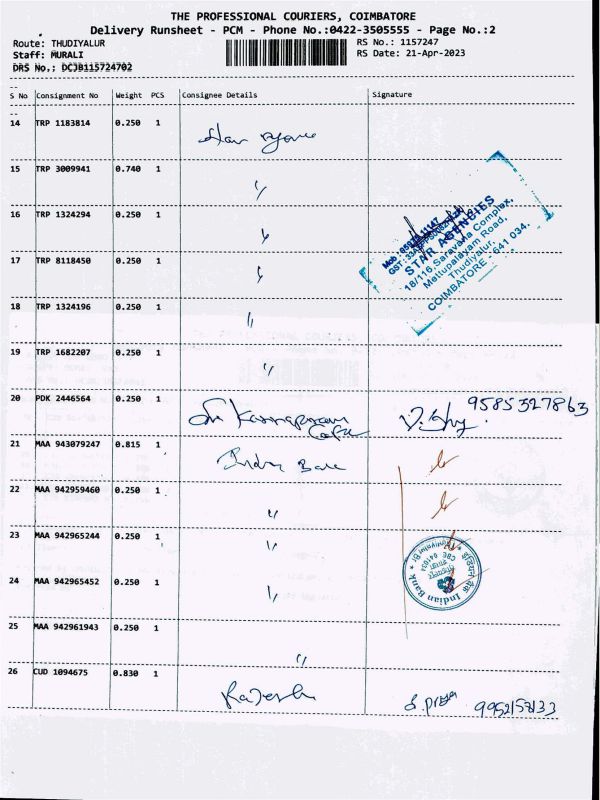 THE PROFESSIONAL COURIERS, COIMBATORE
Delivery Runsheet - PCM - Phone No.:0422-3505555 - Page No.:2
Route: THUDIYALUR
RS No.: 1157247
Staff: MURALI
RS Date: 21-Apr-2023
DRS No.: DCJB115724702
S No Consignment No Weight PCS Consignee Details Signature
14 TRP 1183814 0.250 1
15 TRP 3009941 0.740 1 "
16 TRP 1324294 0.250 1 "
17 TRP 8118450 0.250 1 "
STAR AGENCIES
18/116, Saravana Complex,
Mettupalayam Road,
Thudiyalur,
COIMBATORE - 641 034.
18 TRP 1324196 0.250 1 "
19 TRP 1682207 0.250 1 "
20 PDK 2446564 0.250 1 Sri Kannapuram Cafe 9585327863
21 MAA 943079247 0.815 1 Indn Bank
22 MAA 942959460 0.250 1 "
23 MAA 942965244 0.250 1 "
24 MAA 942965452 0.250 1 "
Indian Bank
25 MAA 942961943 0.250 1 "
26 CUD 1094675 0.830 1 Rajesh 9952157133